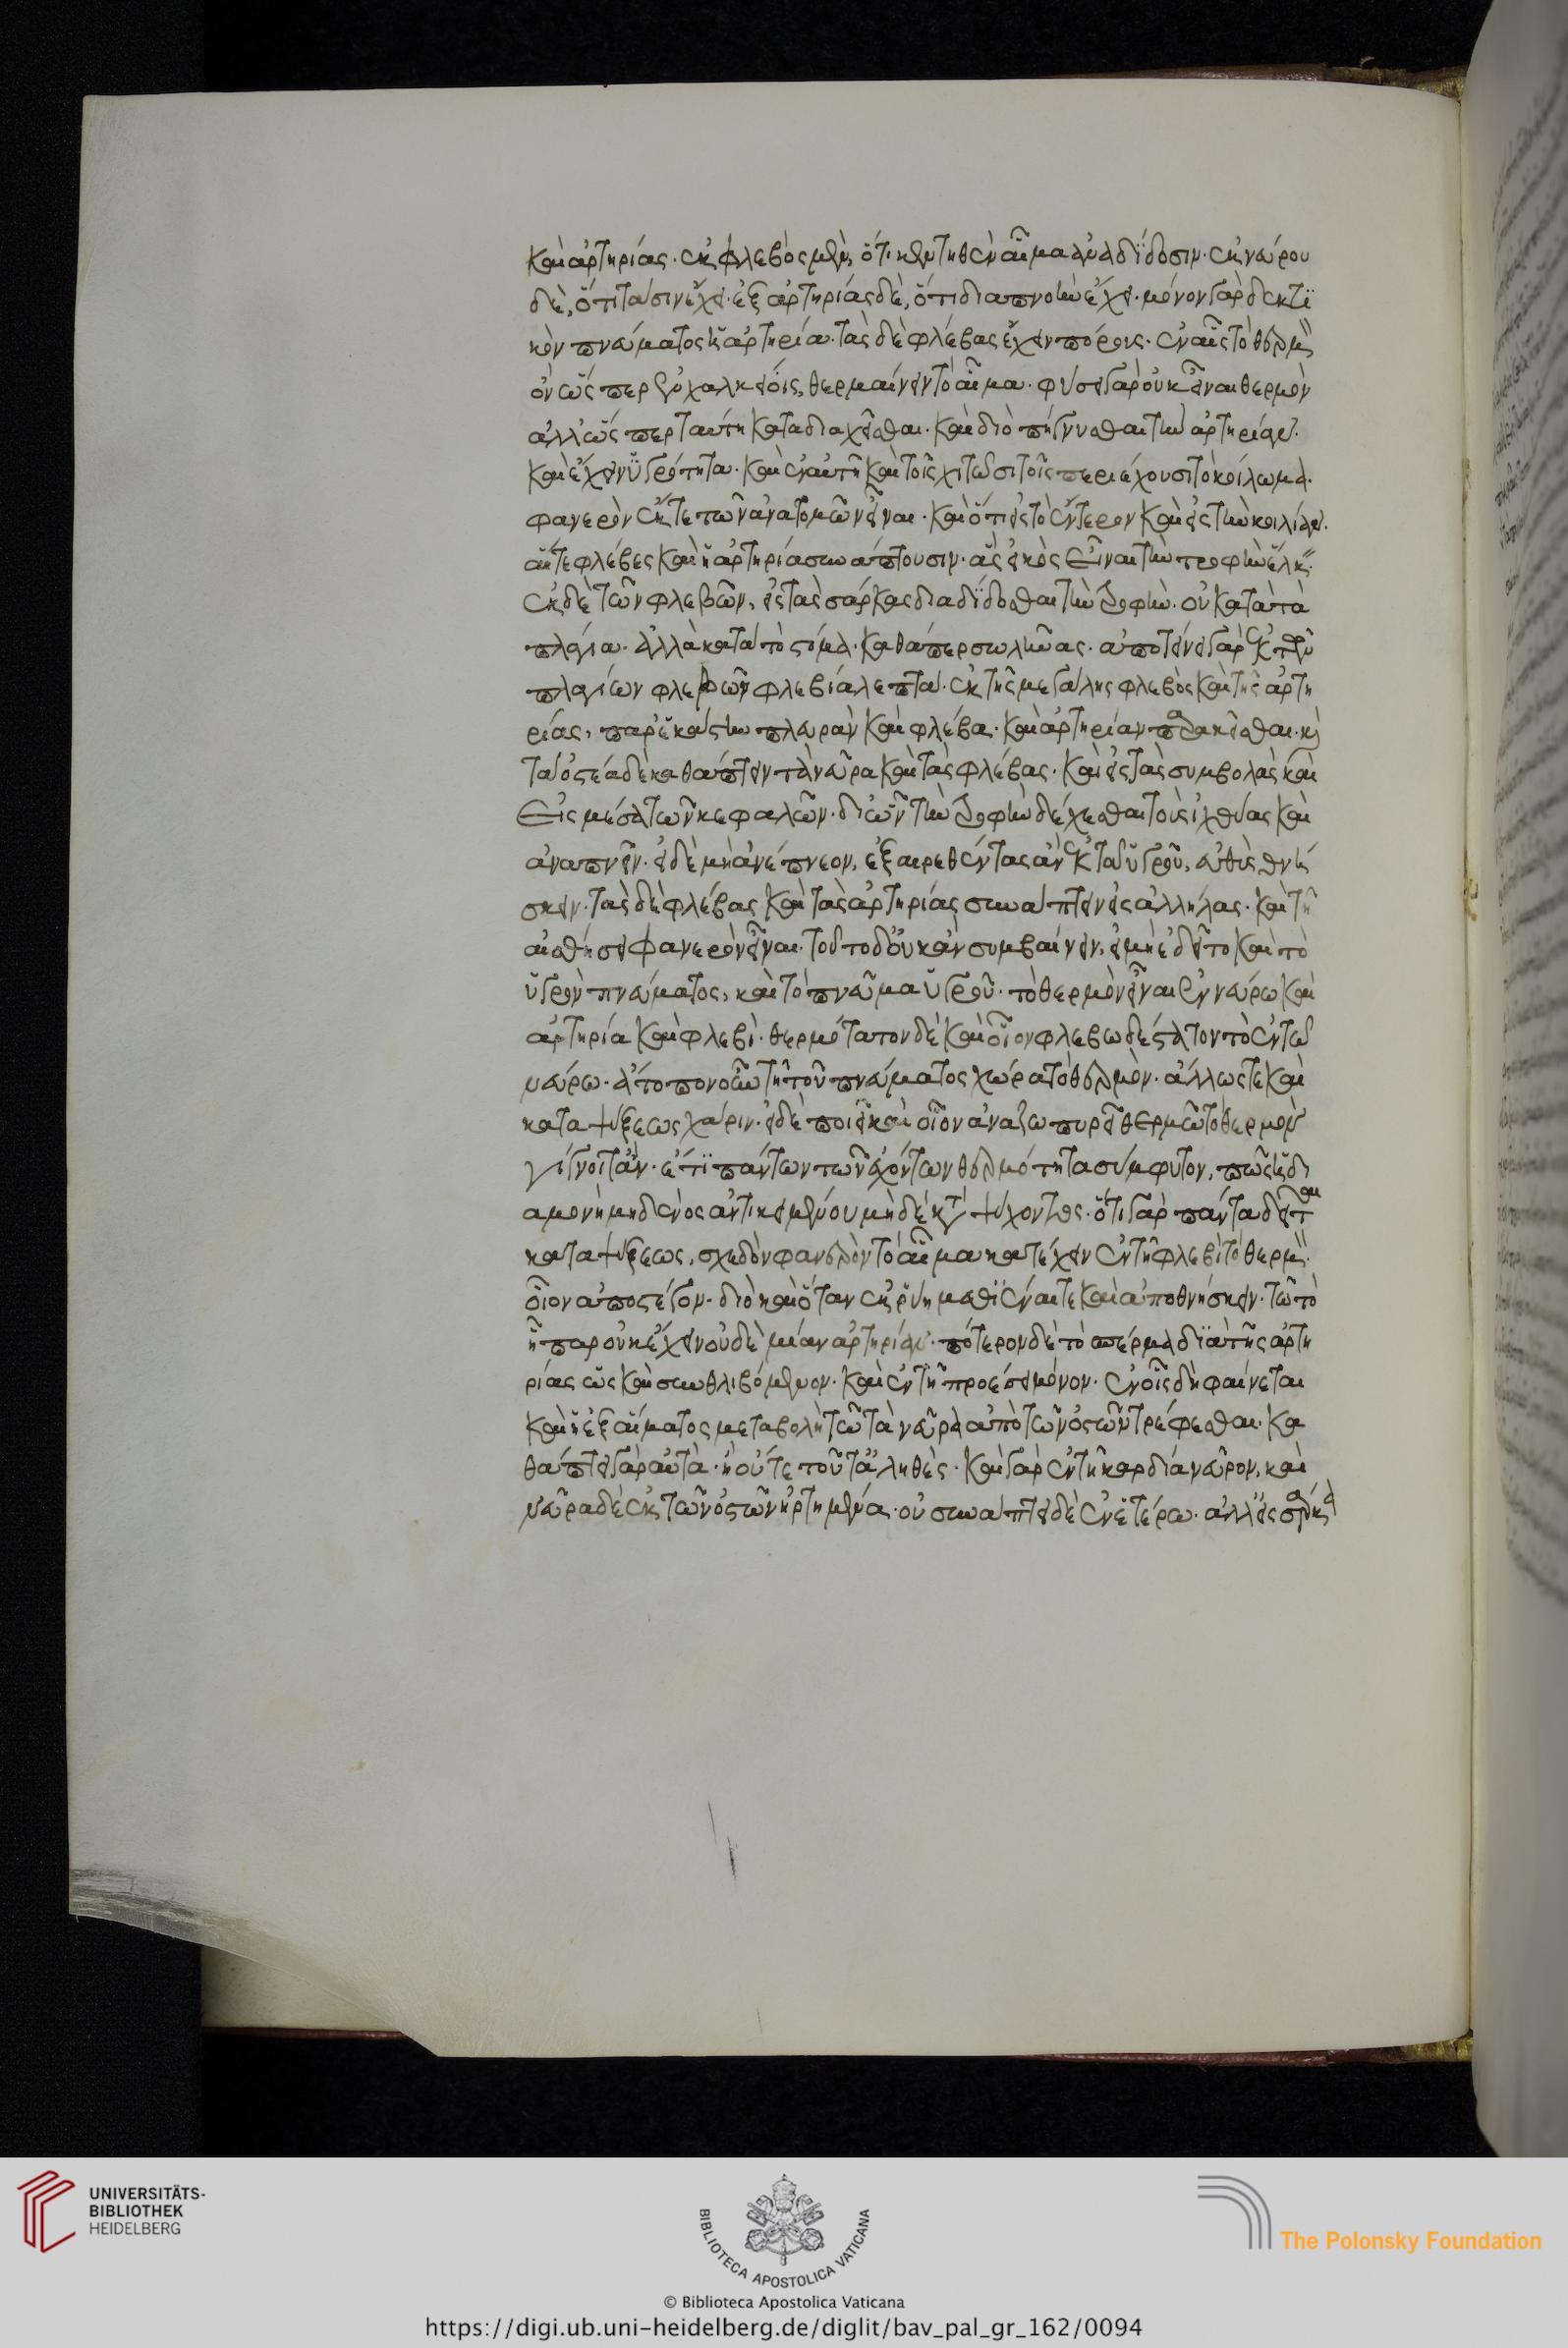 καὶ ἀρτηρίας. ἐκ φλεβὸς μὲν, ὅτι κεντηθὲν αἷμα ἀναδίδοσιν. ἐκ νεύρου
δὲ, ὅτι τάσιν ἔχει. ἐξ ἀρτηρίας δὲ, ὅτι διαπνοὴν ἔχει. μόνον γὰρ δεκτι
κὸν πνεύματος ἡ ἀρτηρία. τὰς δὲ φλέβας ἔχειν πόρους. ἐν αἷς τὸ θερμὸν
ὂν ὥσπερ ἐν χαλκείοις, θερμαίνειν τὸ αἷμα. φύσει γὰρ οὐκ εἶναι θερμὸν
ἀλλ' ὥσπερ ταύτη καταδιαχεῖσθαι. καὶ διὸ πήγνυσθαι τὴν ἀρτηρίαν.
καὶ ἔχειν ὑγρότητα. καὶ ἐν αὐτῆ καὶ τοῖς χιτῶσι τοῖς περιέχουσι τὸ κοίλωμα.
φανερὸν ἔκ τε τῶν ἀνατομῶν εἶναι. καὶ ὅτι εἰς τὸ ἔντερον καὶ εἰς τὴν κοιλίαν.
αἵ τε φλέβες καὶ ἡ ἀρτηρία συνάπτουσιν. ἃς εἰκὸς εἶναι τὴν τροφὴν ἕλκειν.
ἐκ δὲ τῶν φλεβῶν, εἰς τὰς σάρκας διαδίδοσθαι τὴν τροφὴν. οὐ κατὰ τὰ
πλάγια. ἀλλὰ κατὰ τὸ στόμα. καθάπερ σωλῆνας. ἀποτείνει γὰρ ἐκ τῶν
πλαγίων φλεβῶν φλεβία λεπτὰ. ἐκ τῆς μεγάλης φλεβὸς καὶ τῆς ἀρτη
ρίας, παρ' ἑκάστην πλευρὰν καὶ φλέβα. καὶ ἀρτηρίαν παρακεῖσθαι. καὶ
τὰ ὀστέα δὲ καθάπτειν τὰ νεῦρα καὶ τὰς φλέβας. καὶ εἰς τὰς συμβολὰς καὶ
εἰς μέσα τῶν κεφαλῶν. δι' ὧν τὴν τροφὴν δέχεσθαι τοὺς ἰχθύας καὶ
ἀναπνεῖν. εἰ δὲ μὴ ἀνέπνεον, ἐξαιρεθέντας ἂν ἐκ τοῦ ὑγροῦ, εὐθὺς θνή
σκειν. τὰς δὲ φλέβας καὶ τὰς ἀρτηρίας συνάπτειν εἰς ἀλλήλας. καὶ τῆ
αἰσθήσει φανερὸν εἶναι. τοῦτο δ' οὐκ ἂν συμβαίνειν, εἰ μὴ ἐδεῖτο καὶ τὸ
ὑγρὸν πνεύματος, καὶ τὸ πνεῦμα ὑγροῦ. τὸ θερμὸν εἶναι ἐν νεύρω καὶ
ἀρτηρία καὶ φλεβὶ. θερμότατον δὲ καὶ οἷον φλεβωδέστατον τὸ ἐν τῶ
νεύρω. ἄτοπον οὖν τῆ τοῦ πνεύματος χώρα τὸ θερμὸν. ἄλλως τε καὶ
καταψύξεως χάριν. εἰ δὲ ποιεῖ καὶ οἷον ἀναζωπυρεῖ θερμῶ τὸ θερμὸν
γίγνοιτ' ἂν. ἔτι πάντων τῶν ἐχόντων θερμότητα σύμφυτον, πῶς ἡ δι
αμονὴ μηδενὸς ἀντικειμένου μηδὲ καταψύχοντος. ὅτι γὰρ πάντα δεῖται
καταψύξεως, σχεδὸν φανερὸν τὸ αἷμα κατέχειν ἐν τῆ φλεβὶ τὸ θερμὸν.
οἷον ἀποστέγον. διὸ καὶ ὅταν ἐκρύη μεθιέναι τε καὶ ἀποθνήσκειν. τῶ τὸ
ἧπαρ οὐκ ἔχειν οὐδὲ μίαν ἀρτηρίαν. πότερον δὲ τὸ σπέρμα διὰ τῆς ἀρτη
ρίας ὡς καὶ συνθλιβόμενον. καὶ ἐν τῆ προέσει μόνον. ἐν οἷς δὴ φαίνεται
καὶ ἡ ἐξ αἵματος μεταβολὴ τῶ τὰ νεῦρα ἀπὸ τῶν ὀστῶν τρέφεσθαι. κα
θάπτει γὰρ αὐτὰ. ἢ οὔτε τοῦτ' ἀληθὲς. καὶ γὰρ ἐν τῆ καρδία νεῦρον, καὶ
νεῦρα δὲ ἐκ τῶν ὀστῶν ἠρτημένα. οὐ συνάπτει δὲ ἐν ἑτέρω. ἀλλ' εἰς σάρκα
UNIVERSITÄTS-
BIBLIOTHEK
HEIDELBERG
BIBLIOTECA APOSTOLICA VATICANA
The Polonsky Foundation
© Biblioteca Apostolica Vaticana
https://digi.ub.uni-heidelberg.de/diglit/bav_pal_gr_162/0094